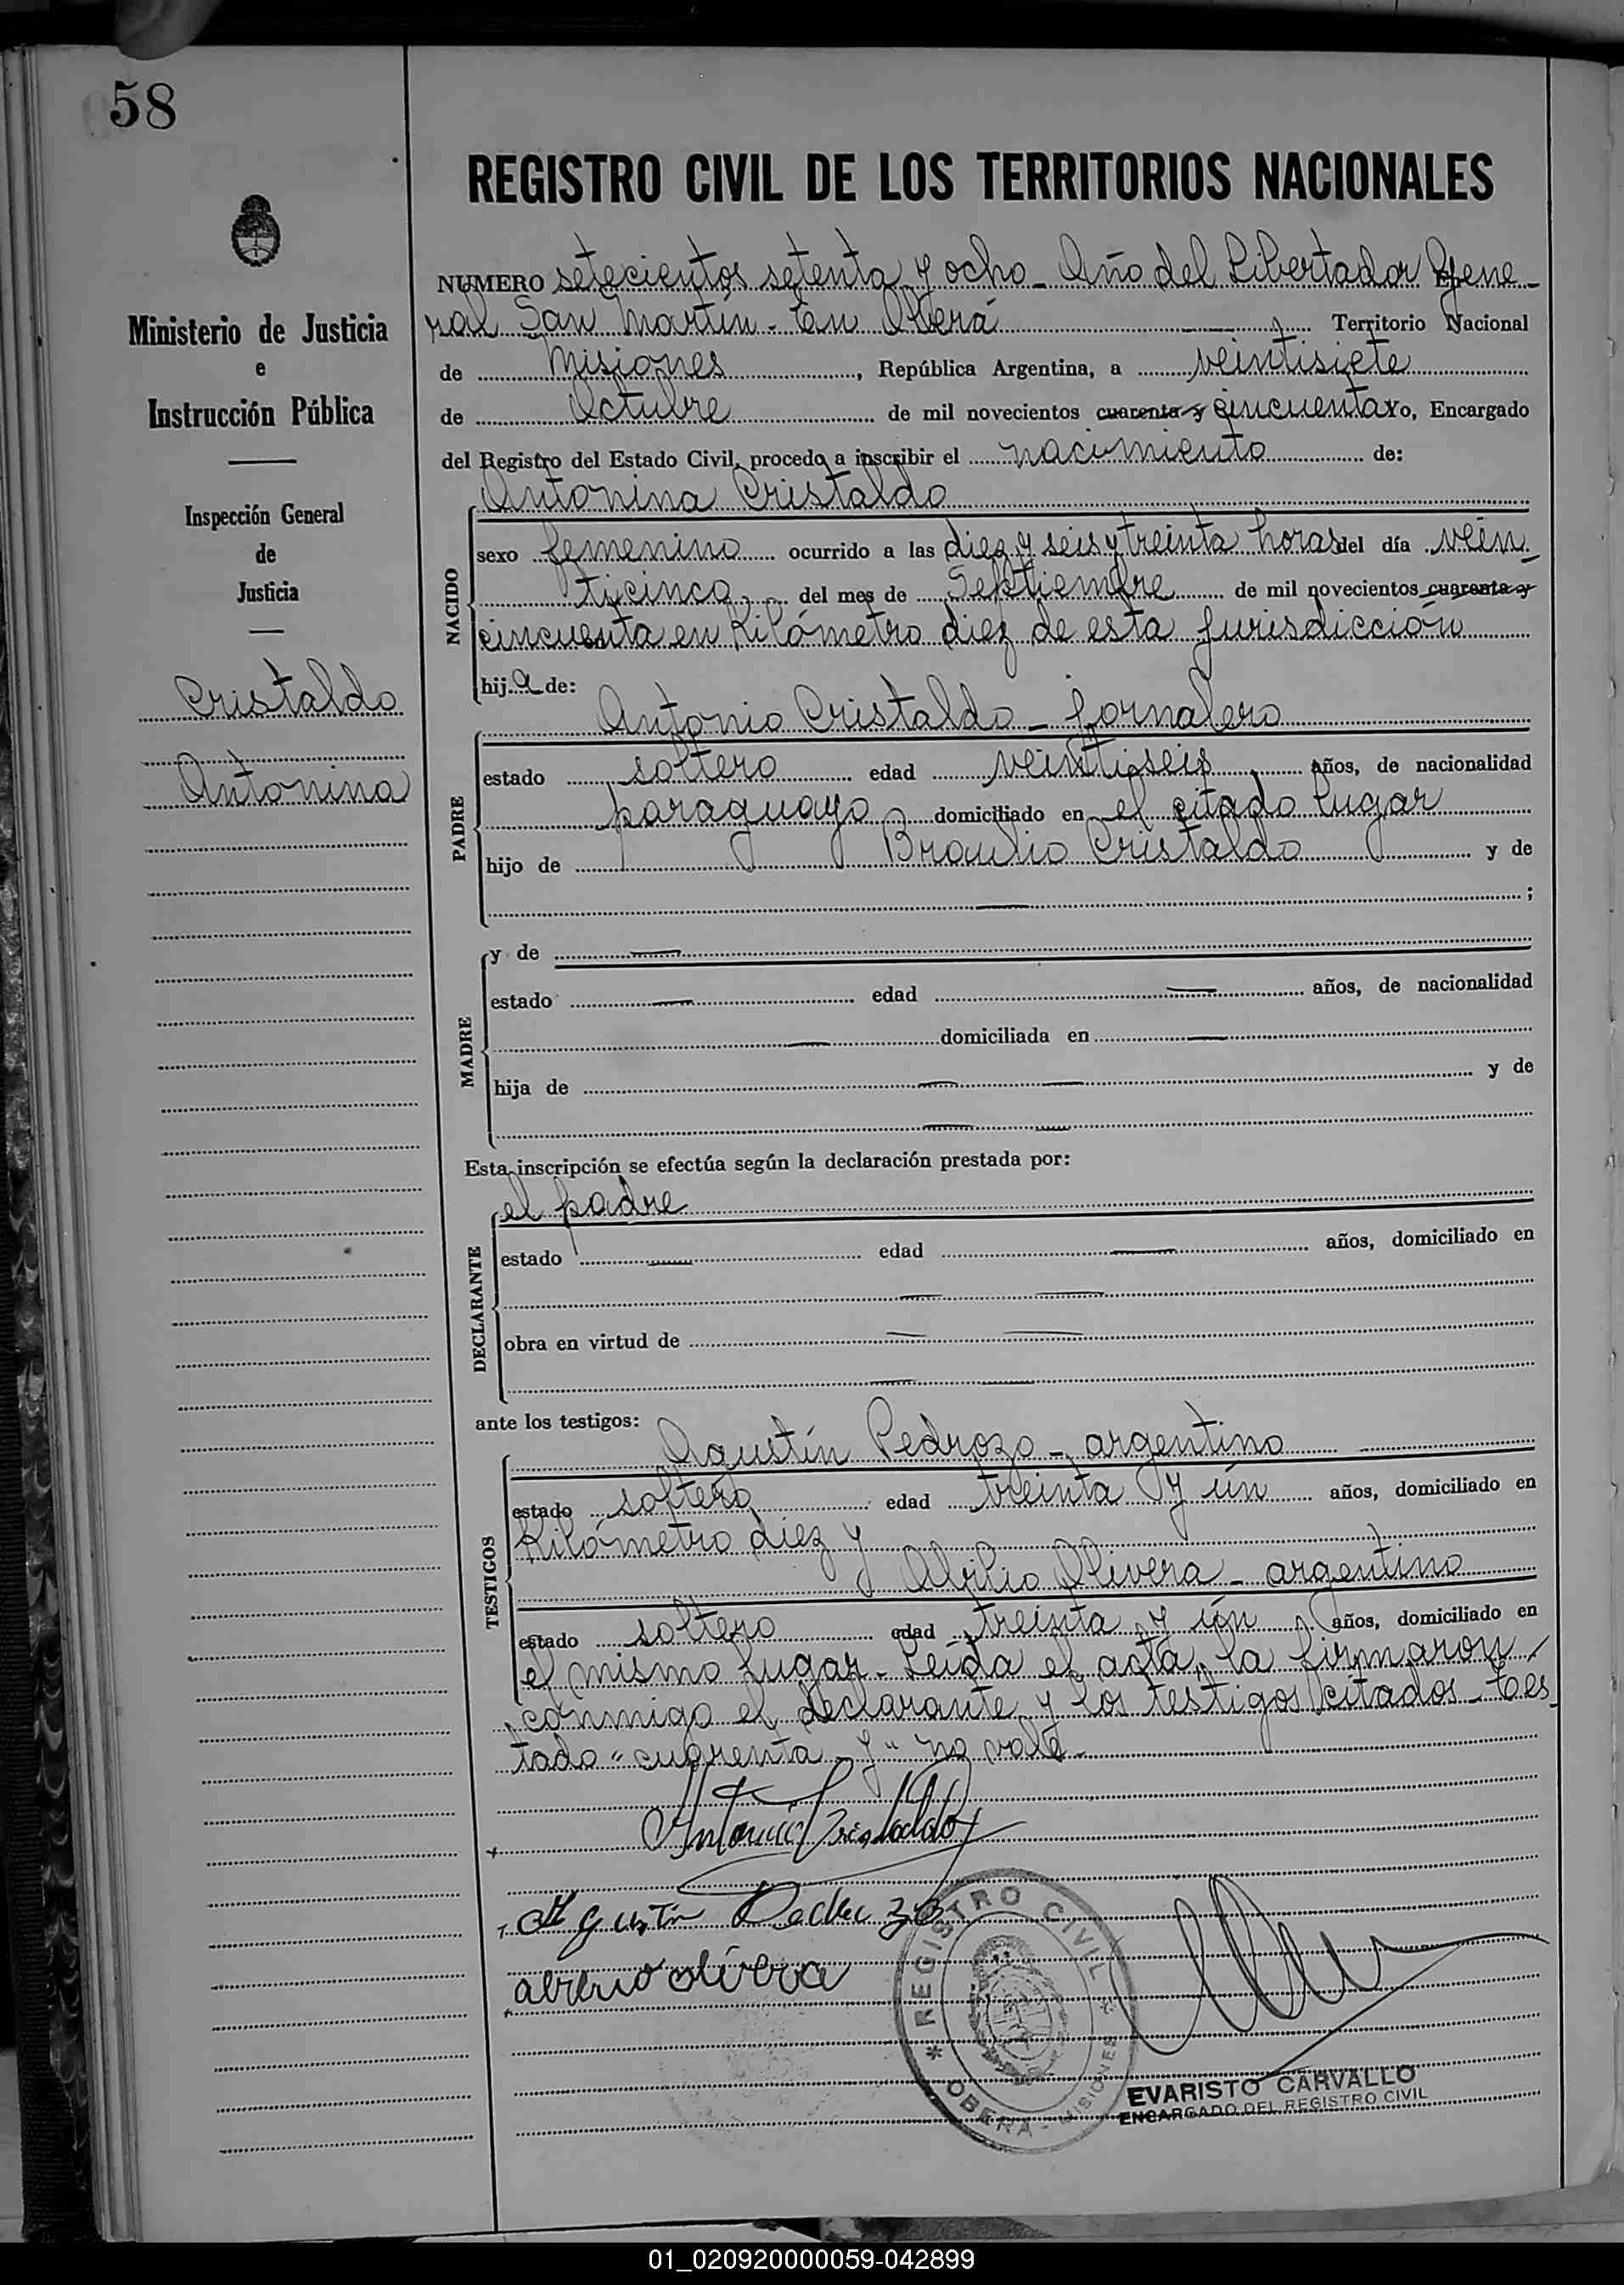 58
REGISTRO CIVIL DE LOS TERRITORIOS NACIONALES
Ministerio de Justicia
e
Instrucción Pública
Inspección General
de
Justicia
Cristaldo
Antonina
NUMERO setecientos setenta y ocho - Año del Libertador Gene-
ral San Martín - En Oberá Territorio Nacional
de Misiones, República Argentina, a veintisiete
de Octubre de mil novecientos cuarenta y cincuenta Yo, Encargado
del Registro del Estado Civil, procedo a inscribir el nacimiento de:
Antonina Cristaldo
NACIDO
sexo femenino ocurrido a las diez y seis y treinta horas del día vein-
ticinco del mes de Septiembre de mil novecientos cuarenta y
cincuenta en Kilómetro diez de esta jurisdicción
hija de:
PADRE
Antonio Cristaldo - jornalero
estado soltero edad veintiseis años, de nacionalidad
paraguayo domiciliado en el citado lugar
hijo de Braulio Cristaldo y de
;
MADRE
y de
estado edad años, de nacionalidad
domiciliada en
hija de y de
Esta inscripción se efectúa según la declaración prestada por:
DECLARANTE
el padre
estado edad años, domiciliado en
obra en virtud de
ante los testigos:
TESTIGOS
Agustín Pedrozo - argentino
estado soltero edad treinta y ún años, domiciliado en
Kilómetro diez y
Olivera - argentino
estado soltero edad treinta y ún años, domiciliado en
el mismo lugar - Leída el acta, la firmaron
conmigo el declarante y los testigos citados - Tes-
tado "cuarenta y" no vale -
Antonio Cristaldo
Agustin
olivera
REGISTRO CIVIL
* OBERÁ - MISIONES *
EVARISTO CARVALLO
ENCARGADO DEL REGISTRO CIVIL
01_020920000059-042899